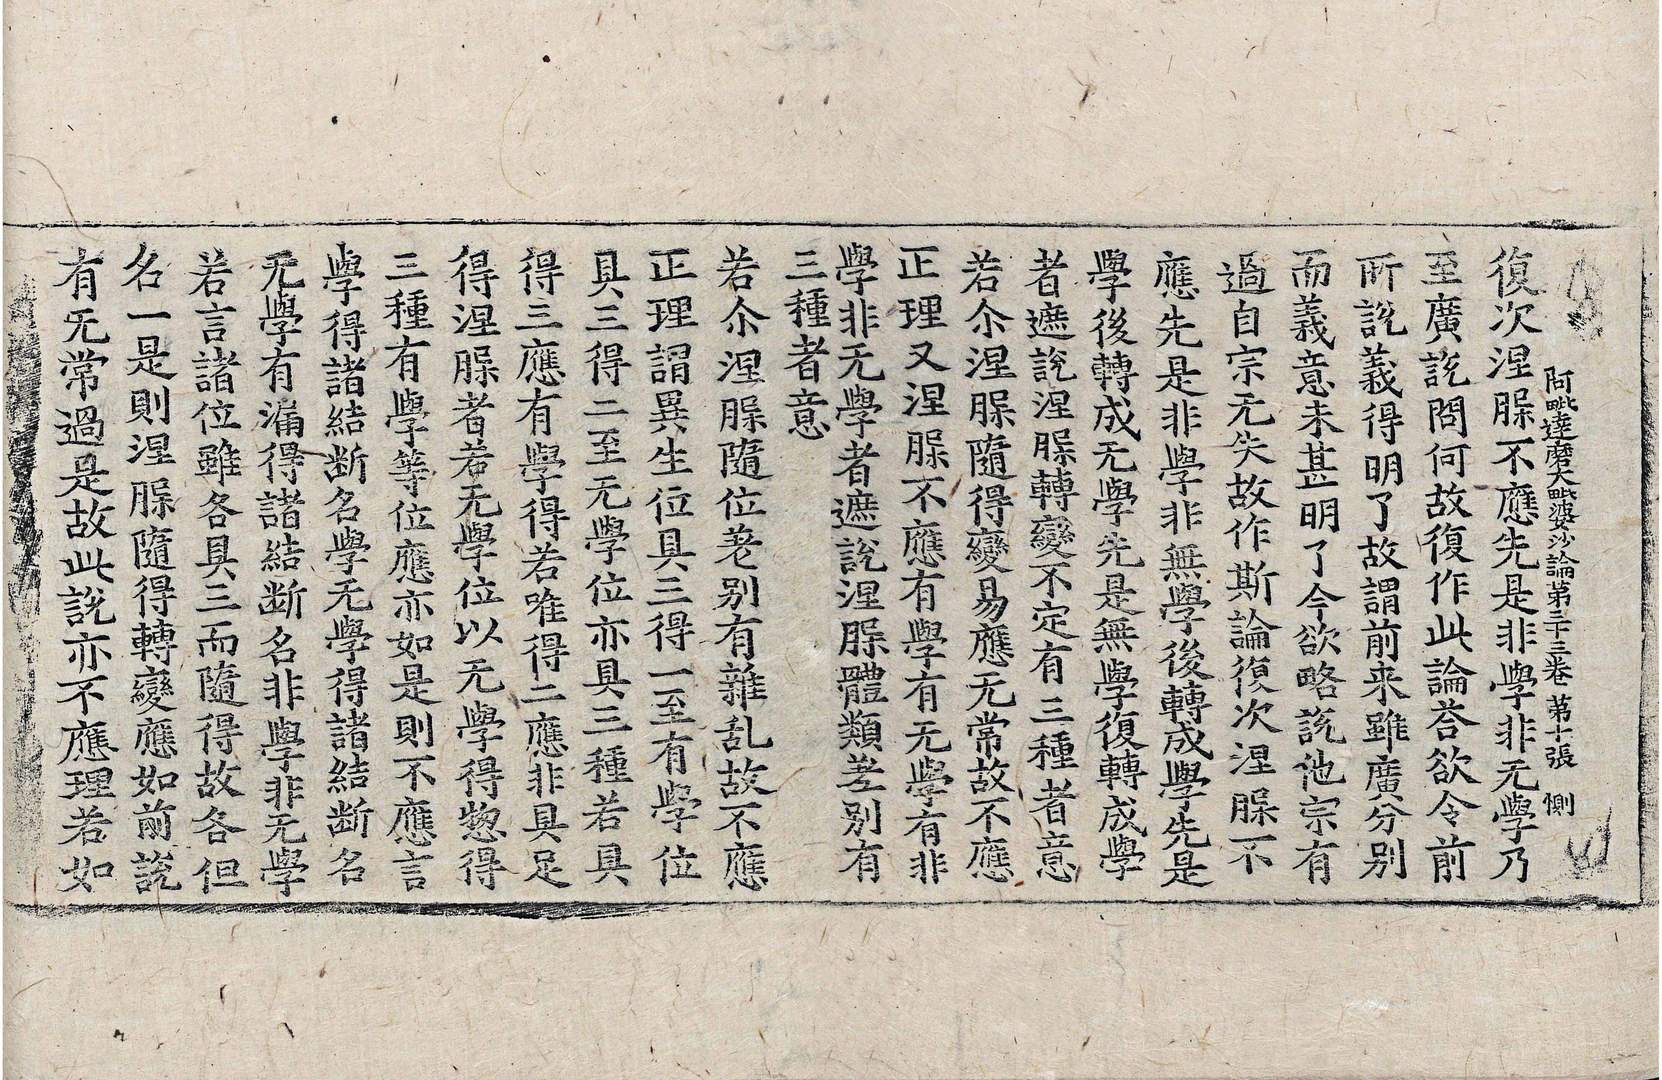 阿毗達磨大毗婆沙論第三十三卷 第十張 惻
復次涅槃不應先是非學非无學乃
至廣說問何故復作此論荅欲令前
所說義得明了故謂前来雖廣分別
而義意未甚明了今欲略說他宗有
過自宗无失故作斯論復次涅槃不
應先是非學非無學後轉成學先是
學後轉成无學先是無學復轉成學
者遮說涅槃轉變不定有三種者意
若尒涅槃隨得變易應无常故不應
正理又涅槃不應有學有无學有非
學非无學者遮說涅槃體類差別有
三種者意
若尒涅槃隨位差別有雜乱故不應
正理謂異生位具三得一至有學位
具三得二至无學位亦具三種若具
得三應有學得若唯得二應非具足
得涅槃者若无學位以无學得惣得
三種有學等位應亦如是則不應言
學得諸結断名學无學得諸結断名
无學有漏得諸結断名非學非无學
若言諸位雖各具三而隨得故各但
名一是則涅槃隨得轉變應如前說
有无常過是故此說亦不應理若如